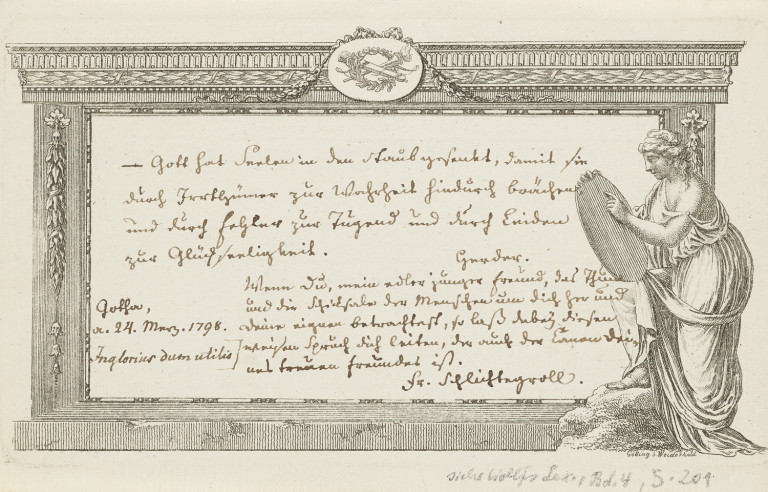 — Gott hat Seelen in den Staub gesenkt, damit sie
durch Irrthümer zur Wahrheit hindurch brächen
und durch Fehler zur Tugend und durch Leiden
zur Glückseeligkeit.
Herder.
Wenn Du, mein edler junger Freund, das Thun
und die Schicksale der Menschen um dich her und
deine eignen betrachtest, so laß dabey diesen
weisen Spruch dich leiten, der auch der Canon dei-
nes treuen Freundes ist.
Fr. Schlichtegroll.
Gotha,
d. 24. Merz. 1798.
Inglorius dum utilis
Göttingen b Wiederhold
siehe Lex., Bd. 4, S. 209